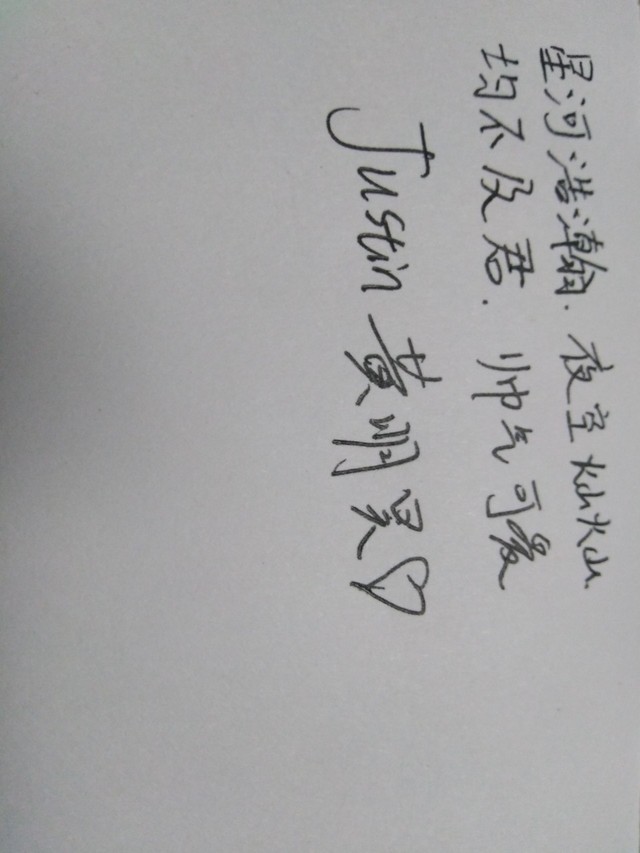 星河浩瀚.夜空灿灿.
均不及君.帅气可爱
Justin 黄明昊♡